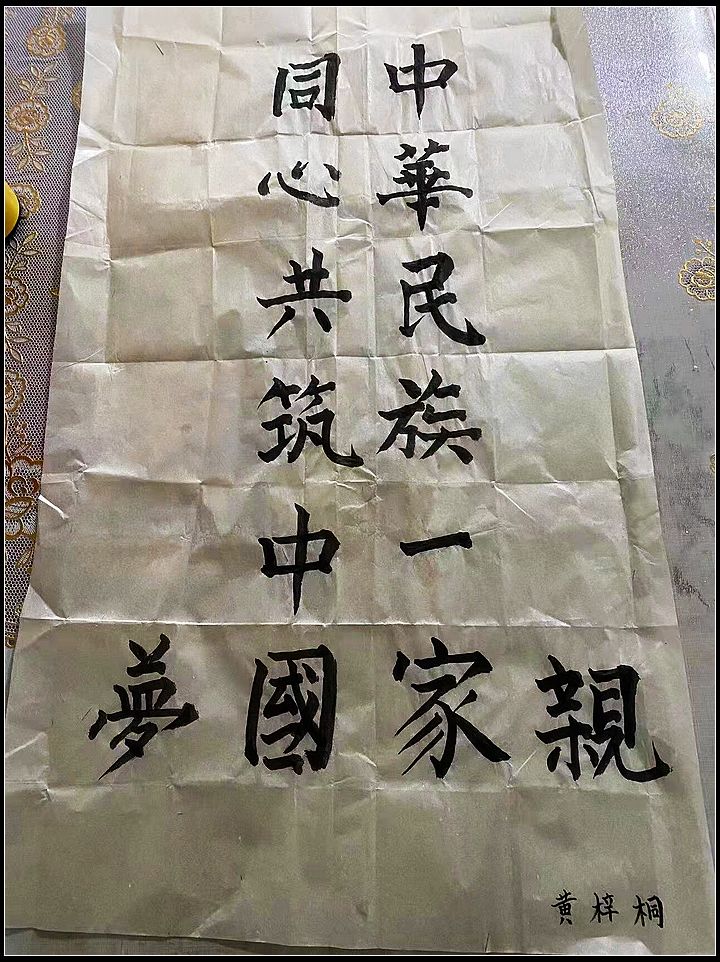 中華民族一家親
同心共筑中國夢
黄梓桐